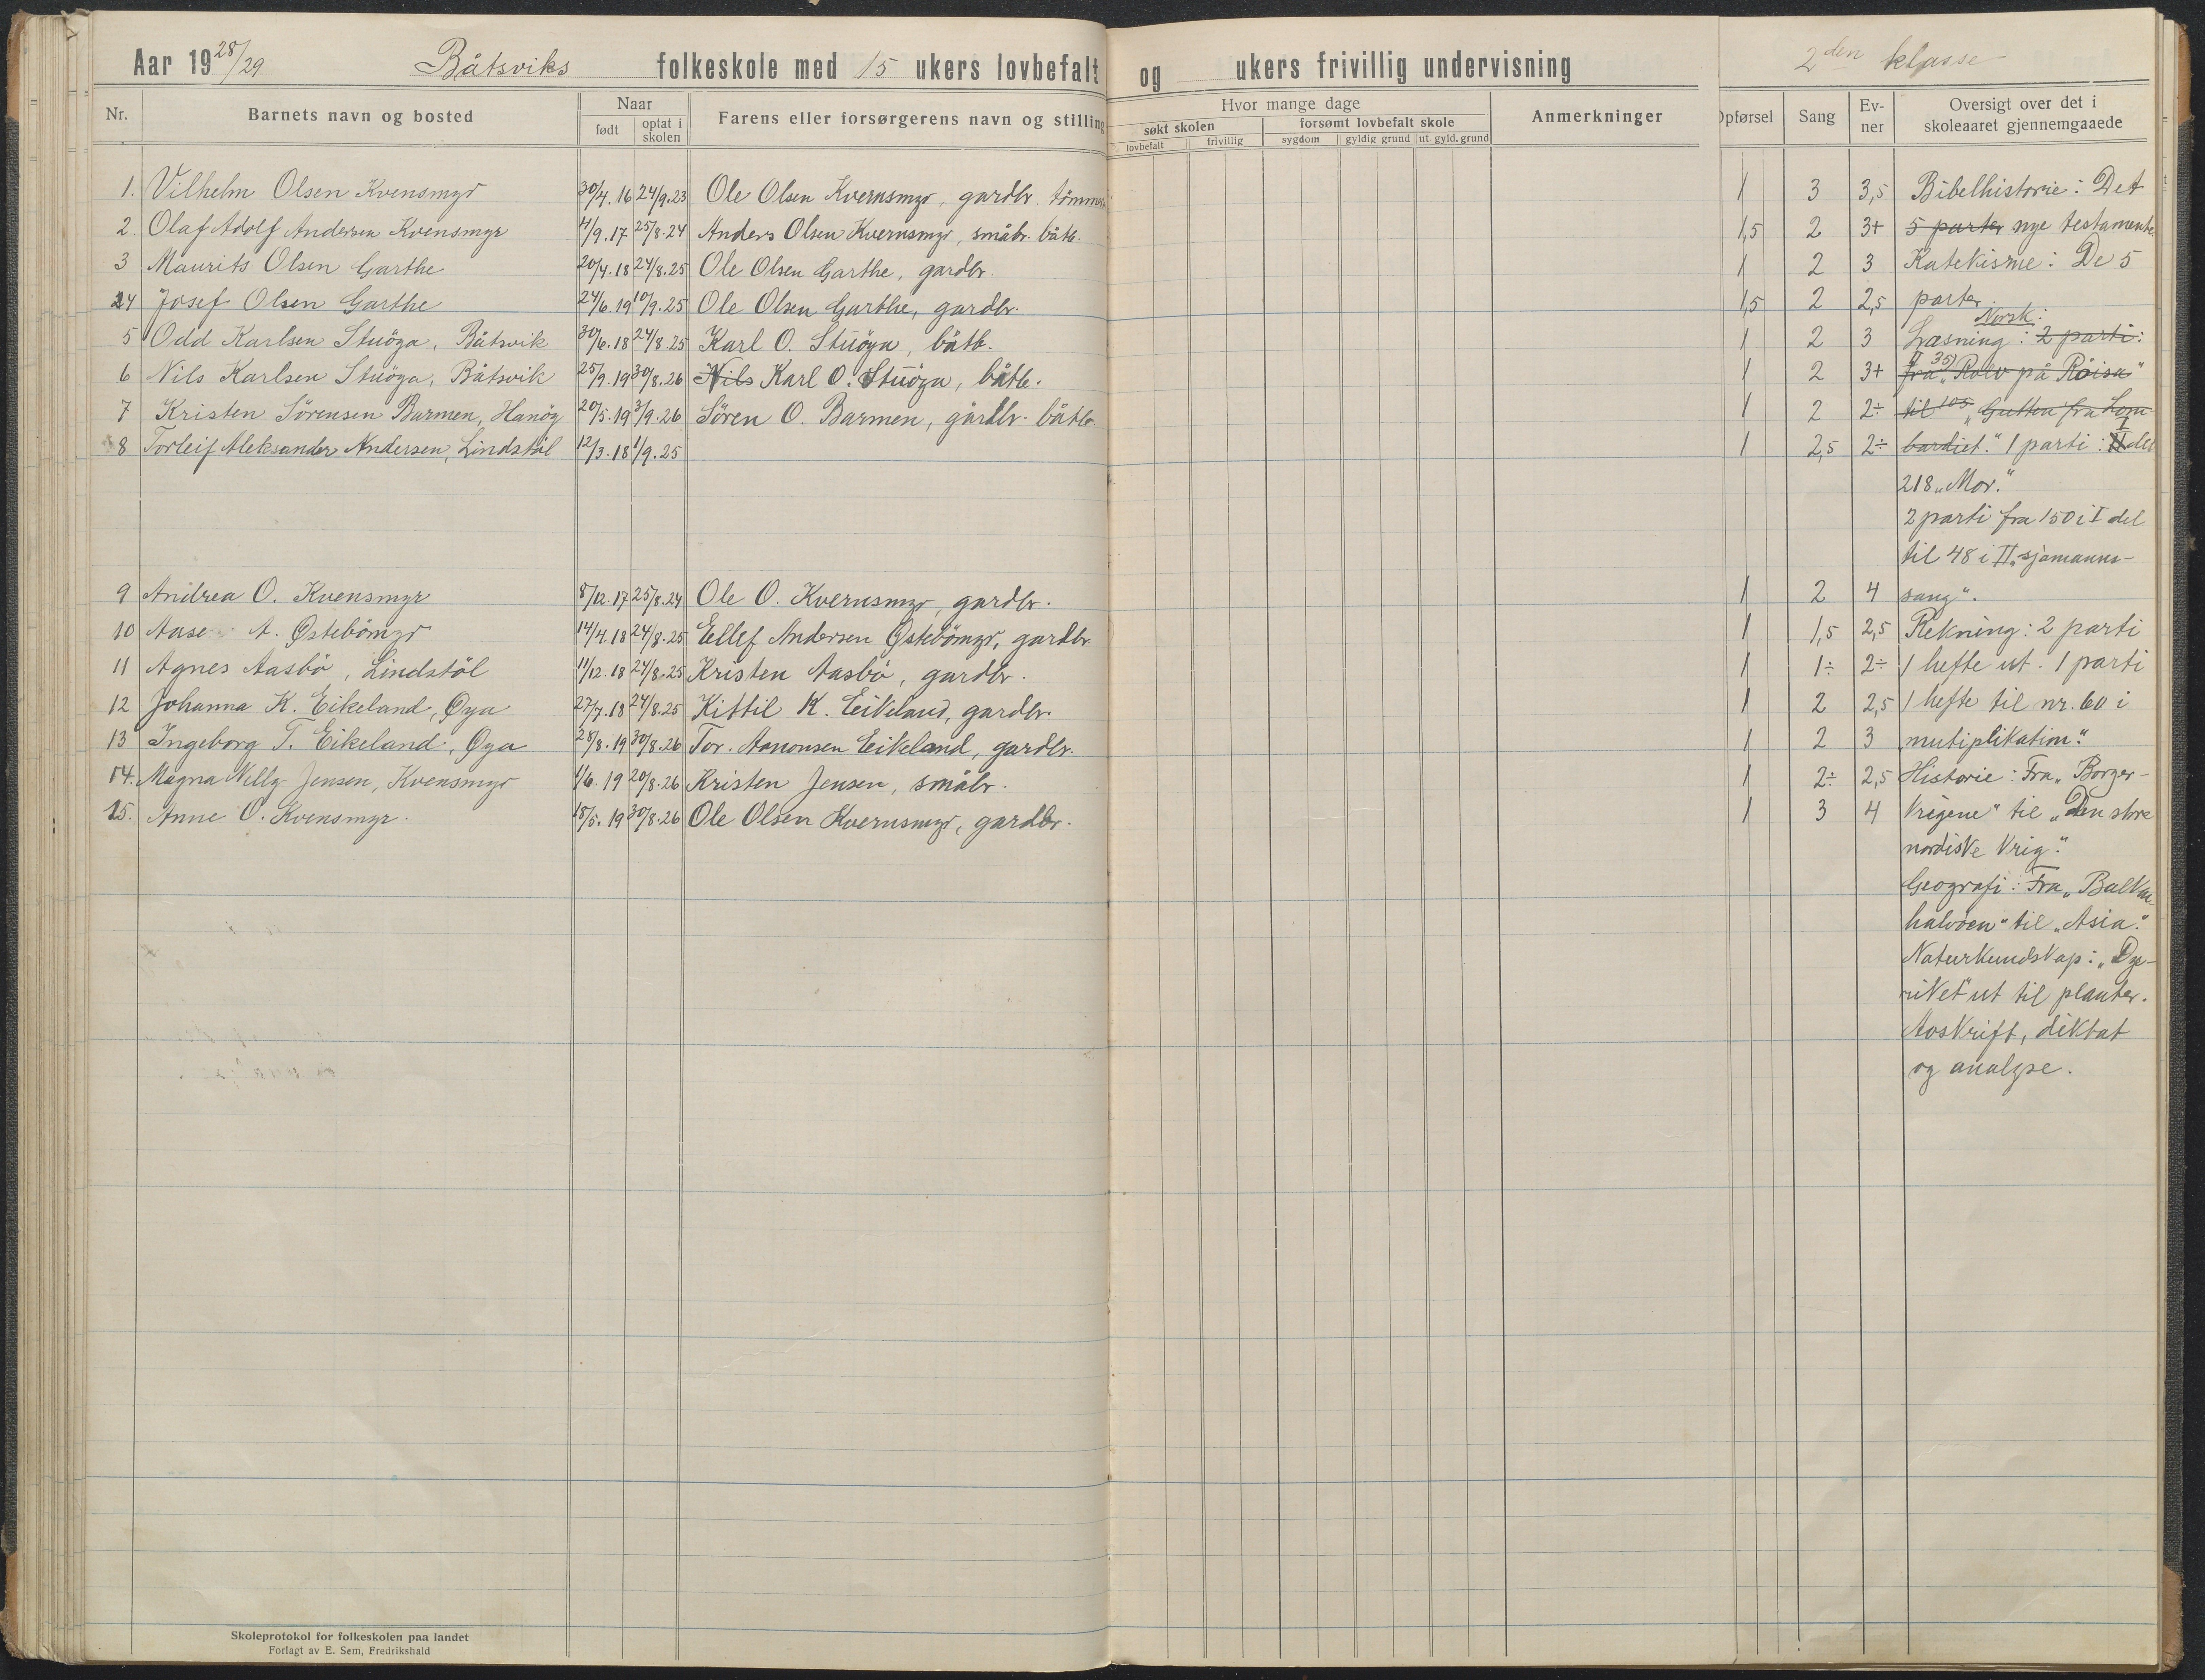 Aar 1928/29 Båtsviks folkeskole med 15 ukers lovbefalt og ukers frivillig undervisning 2den klasse
Nr. Barnets navn og bosted Naar født optat i skolen Farens eller forsørgerens navn og stilling Hvor mange dage søkt skolen lovbefalt frivillig forsømt lovbefalt skole sygdom gyldig grund ut. gyld. grund Anmerkninger Opførsel Sang Evner Oversigt over det i skoleaaret gjennemgaaede
1. Vilhelm Olsen Kvensmyr 30/4.16 24/9.23 Ole Olsen Kvernsmyr, gardbr. 1 3 3,5 Bibelhistorie: Det
2. Olaf Adolf Andersen Kvensmyr 4/9.17 25/8.24 Anders Olsen Kvernsmyr, småbr. båtb. 1,5 2 3+ 5 parter nye testamente
3 Maurits Olsen Garthe 20/4.18 24/8.25 Ole Olsen Garthe, gardbr. 1 2 3 Katekisme: De 5
4 Josef Olsen Garthe 24/6.19 10/9.25 Ole Olsen Garthe, gardbr. 1,5 2 2,5 parter.
Norsk:
5 Odd Karlsen Stuöya, Båtsvik 30/6.18 24/8.25 Karl O. Stuöya, båtb. 1 2 3 Læsning: 2 parti:
II 35)
6 Nils Karlsen Stuöya, Båtsvik 25/9.19 30/8.26 Nils Karl O. Stuöya, båtb. 1 2 3+ fra "Rolv på Röisa"
7 Kristen Sörensen Barmen, Hanöy 20/5.19 3/9.26 Sören O. Barmen, gårdbr. båtb. 1 2 2÷ til 105 "Gutten fra Lom-
8 Torleif Aleksander Andersen, Lindstöl 12/3.18 1/9.25 1 2,5 2÷ bardiet." 1 parti: I del
218 "Mor."
2 parti fra 150 i I del
til 48 i II "sjømanns-
9 Andrea O. Kvensmyr 8/12.17 25/8.24 Ole O. Kvernsmyr, gardbr. 1 2 4 sang".
10 Aase A. Østebömyr 14/4.18 24/8.25 Ellef Andersen Østebömyr, gardbr 1 1,5 2,5 Rekning: 2 parti
11 Agnes Aasbö, Lindstöl 11/12.18 24/8.25 Kristen Aasbö, gardbr. 1 1÷ 2÷ 1 hefte ut. 1 parti
12 Johanna K. Eikeland, Øya 27/7.18 24/8.25 Kittil K. Eikeland, gardbr. 1 2 2,5 1 hefte til nr. 60 i
13 Ingeborg T. Eikeland, Øya 28/8.19 30/8.26 Tor. Aanonsen Eikeland, gardbr. 1 2 3 "mutiplikation".
14. Magna Nelly Jensen, Kvensmyr 1/6.19 20/8.26 Kristen Jensen, småbr. 1 2÷ 2,5 Historie: Fra "Borger-
15. Anne O. Kvensmyr. 18/5.19 30/8.26 Ole Olsen Kvernsmyr, gardbr. 1 3 4 krigene" til "Den store
nordiske krig".
Geografi: Fra "Balkan-
halvöen" til "Asia".
Naturkundskap: "Dyre-
riket" ut til planter.
Avskrift, diktat
og analyse.
Skoleprotokol for folkeskolen paa landet
Forlagt av E. Sem, Fredrikshald